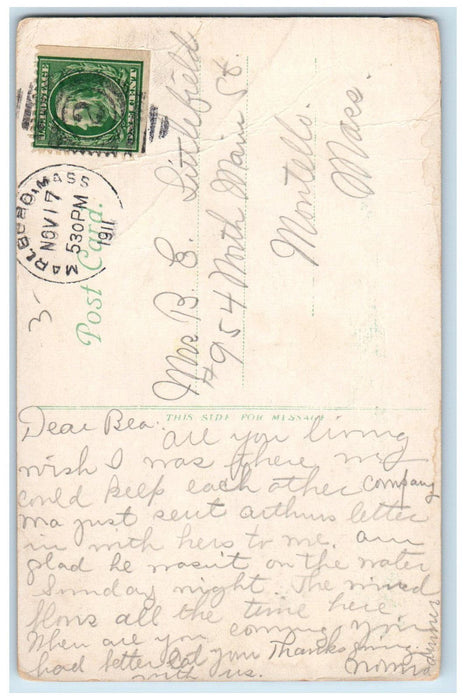 MARLBORO, MASS.
NOV 17
530 PM
1911
U.S. POSTAGE
2
3-
Post Card.
Mrs B. E. Littlefield
#954 North Main St.
Montello.
Mass.
THIS SIDE FOR MESSAGE
Dear Bea: are you living
wish I was there we
could keep each other company
Ma just sent arthurs letter
in with hers to me. am
glad he wasn't on the water
Sunday night. The wind
flows all the time here
When are you coming
had better eat your Thanksgiving
dinner
with us.